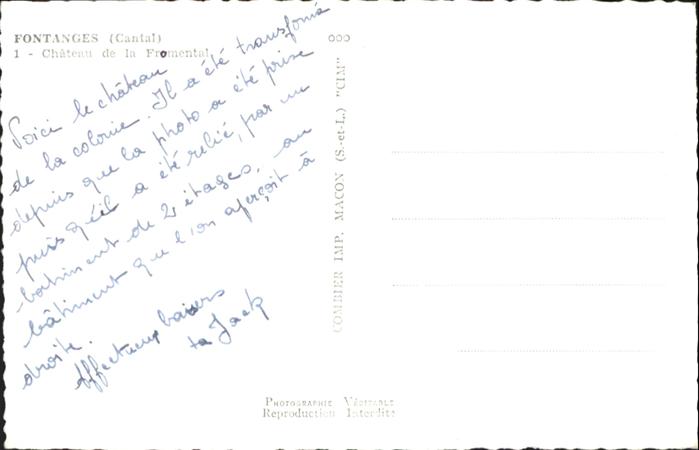 FONTANGES (Cantal)
1 - Château de la Fromental
Voici le château
de la colonie. Il a été transformé
depuis que la photo a été prise
puis qu'il a été relié, par un
batiment de 2 étages, au
bâtiment que l'on aperçoit à
droite.
Affectueux baisers
ta Jack
COMBIER IMP. MACON (S.-et-L.) "CIM"
PHOTOGRAPHIE VÉRITABLE
Reproduction Interdite